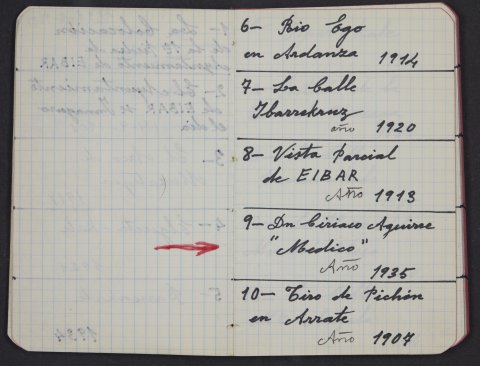 6— Rio Ego
en Ardanza 1914
7— La Calle
Ibarrekruz
año 1920
8— Vista Parcial
de EIBAR
Año 1913
9— Dn Ciriaco Aguirre
"Medico"
Año 1935
10— Tiro de Pichón
en Arrate
Año 1907